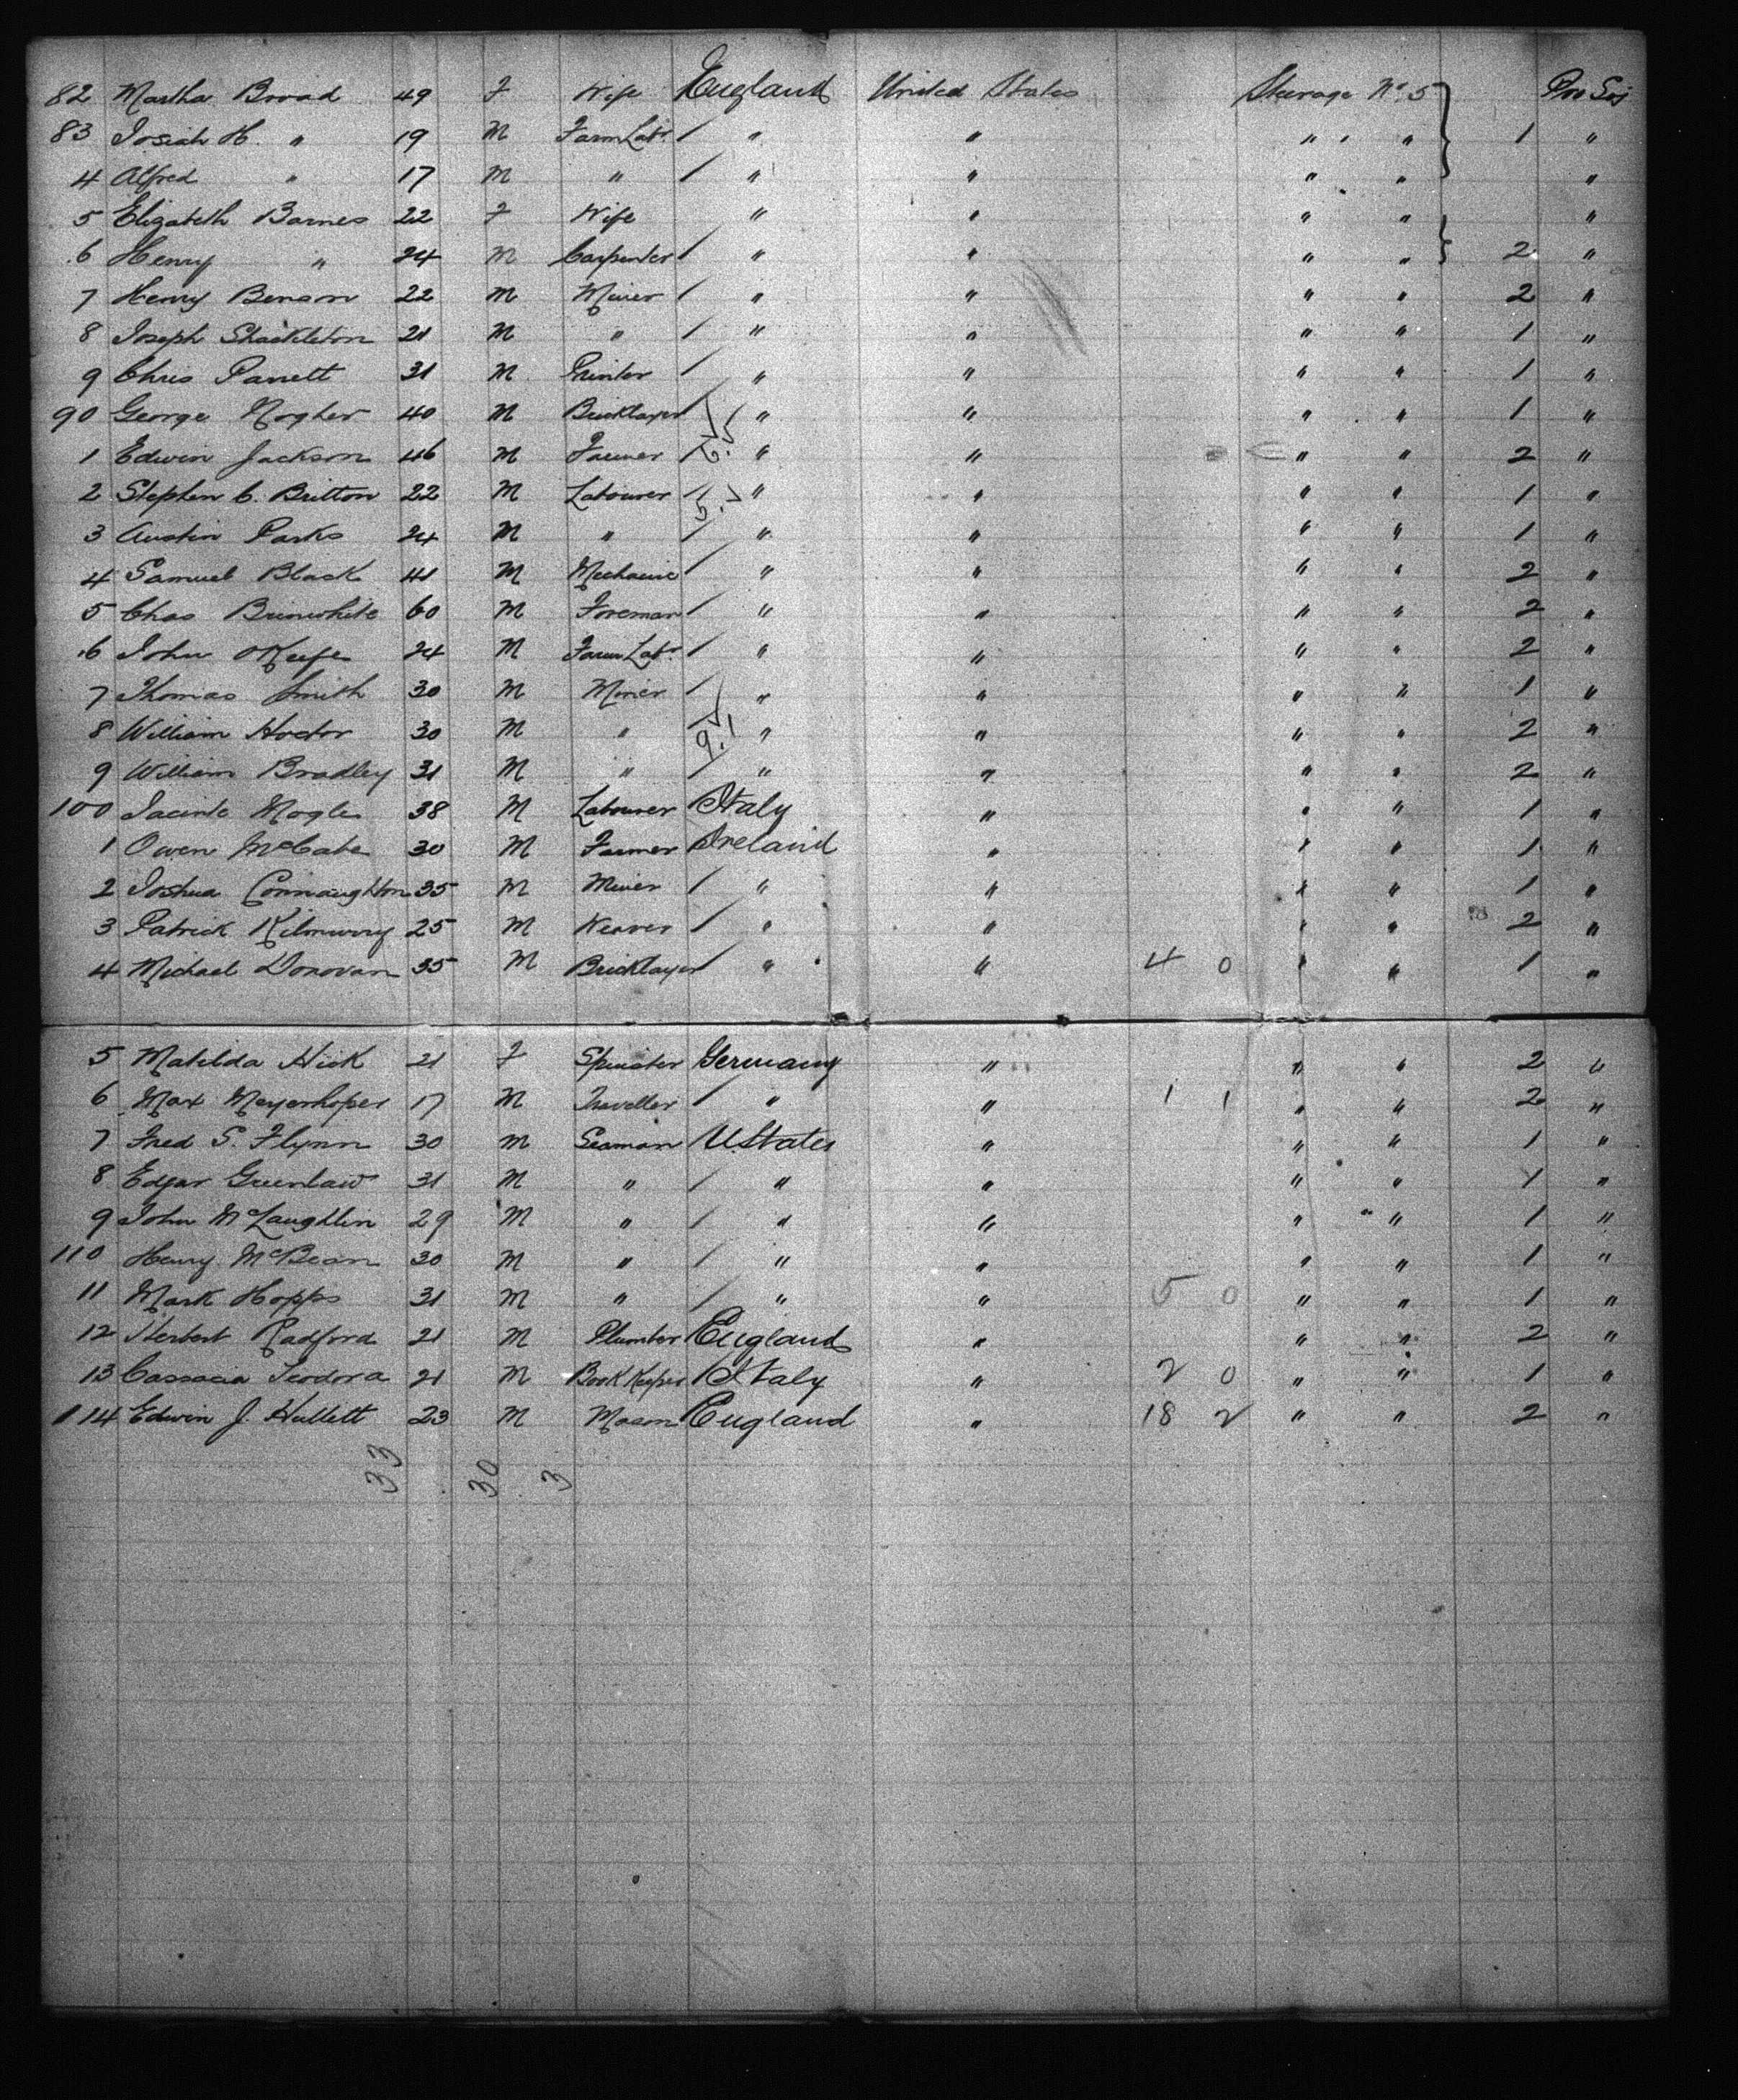 82 Martha Broad 49 F Wife England United States Steerage No. 5 Pro Soj
83 Josiah H. " 19 M Farm Labr. / " " " " 1 "
4 Alfred " 17 M " / " " " " "
5 Elizabeth Barnes 22 F Wife " " " " "
6 Henry " 24 M Carpenter / " " " " 2 "
7 Henry Benson 22 M Miner / " " " " 2 "
8 Joseph Shackleton 21 M " / " " " " 1 "
9 Chris Parrett 31 M Printer / " " " " 1 "
90 George Mogher 40 M Bricklayer / " " " " 1 "
1 Edwin Jackson 46 M Farmer / " " " " 2 "
2 Stephen C. Britton 22 M Labourer / " " " " 1 "
3 Austin Parks 24 M " / " " " " 1 "
4 Samuel Black 41 M Mechanic / " " " " 2 "
5 Chas Brimwhite 60 M Foreman / " " " " 2 "
6 John OKeefe 24 M Farm Labr. / " " " " 2 "
7 Thomas Smith 30 M Miner / " " " " 1 "
8 William Hodor 30 M " / " " " " 2 "
9 William Bradley 31 M " / " " " " 2 "
100 Mogle 38 M Labourer Italy " " " 1 "
1 Owen McCabe 30 M Farmer Ireland " " " 1 "
2 Joshua Connaughton 35 M Miner / " " " " 1 "
3 Patrick Kilmurry 25 M Weaver / " " " " 2 "
4 Michael Donovan 35 M Bricklayer / " " 4 0 " " 1 "
5 Matilda Hick 21 F Spinster Germany " " " 2 "
6 Max Meyerhoper 17 M Traveller / " " 1 1 " " 2 "
7 Fred S. Flynn 30 M Seaman U.States " " " 1 "
8 Edgar Greenlaw 31 M " / " " " " 1 "
9 John McLaughlin 29 M " / " " " " 1 "
110 Henry McBean 30 M " / " " " " 1 "
11 Mark Hopps 31 M " / " " 5 0 " " 1 "
12 Herbert Radford 21 M Plumber England " " " 2 "
13 Cassacia Teodora 21 M Book Keeper Italy " 2 0 " " 1 "
114 Edwin J. Hullett 23 M Mason England " 18 2 " " 2 "
33 30 3